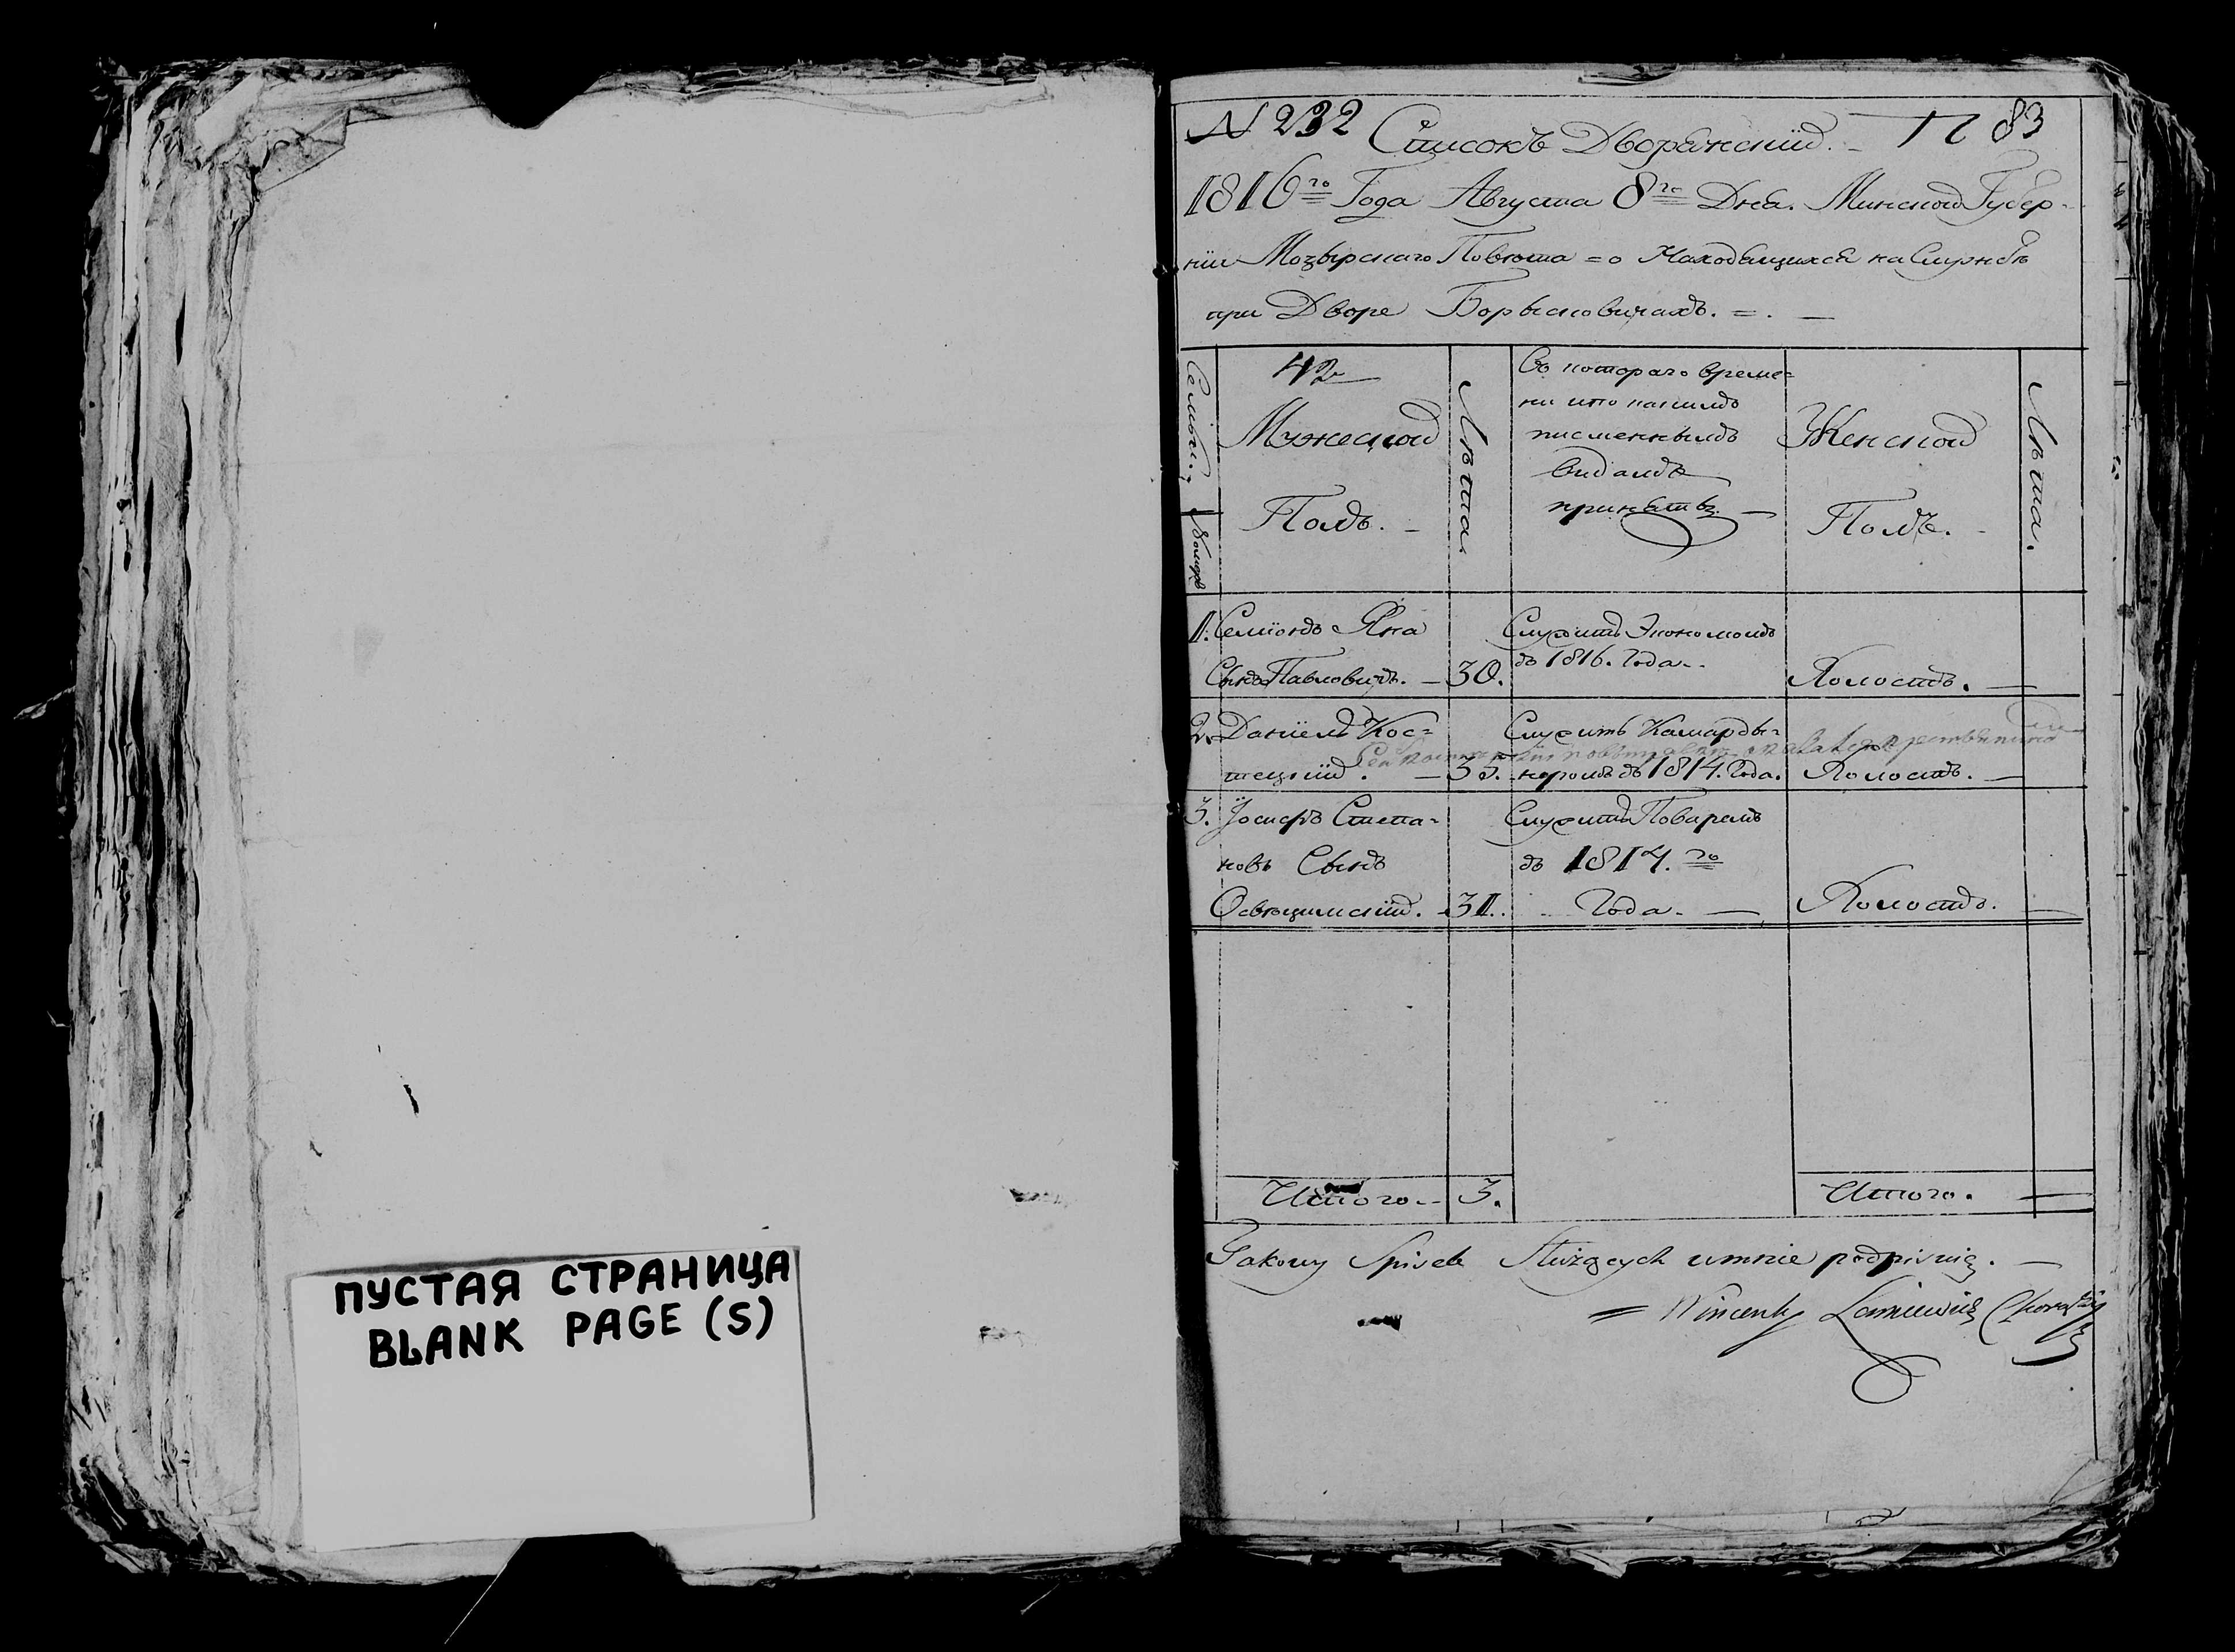 ПУСТАЯ СТРАНИЦА
BLANK PAGE (S)
N 232 Списокъ Дворянскій. 83
1816го Года Августа 8го Дня. Минской Губер-
ніи Мозырскаго Повѣта = о Находящихся на Службѣ
при Дворе Борысковичахъ. =. —
Семьи.
Номеръ
42
Мужеской
Полъ. -
Лѣта.
Съ котораго време=
ни и по какимъ
писменнымъ
видамъ
принятъ. —
Женской
Полъ. -
Лѣта.
1. Семіонъ Яна
Сынъ Павловичъ. - 30.
Служитъ Экономомъ
въ 1816. Года..
Холостъ. —
2. Даніель Кос=
тецкій. - 33.
Служитъ Камарды-
неромъ въ 1814. Года.
Холостъ. —
3. Іосифъ Степа-
новъ Сынъ
Освѣцимскій. - 31.
Служитъ Поваромъ
въ 1814.го
Года. —
Холостъ. —
Итого. - 3.
Итого. —
Takowy Spisek Służących umnie podpisuię. —
= Wincenty